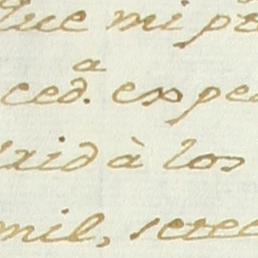 Que mi pe
ced.ª expe
xid à los
mil, setec